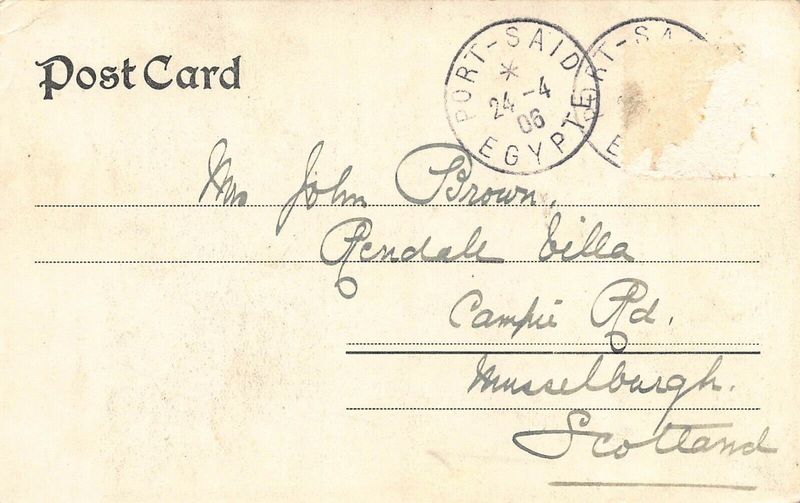 Post Card
PORT-SAID
*
24-4
06
EGYPTE
PORT-SA
E
Mrs John Brown,
Rendale Villa
Campie Rd.
Musselburgh.
Scotland